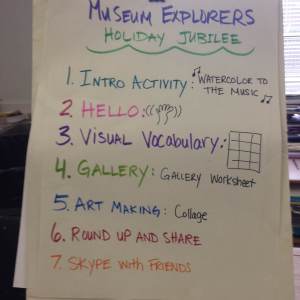 MUSEUM EXPLORERS
HOLIDAY JUBILEE
1. INTRO ACTIVITY: WATERCOLOR TO
THE MUSIC
2. HELLO:
3. VISUAL VOCABULARY:
4. GALLERY: GALLERY WORKSHEET
5. ART MAKING: Collage
6. ROUND UP AND SHARE
7. SKYPE with FRIENDS